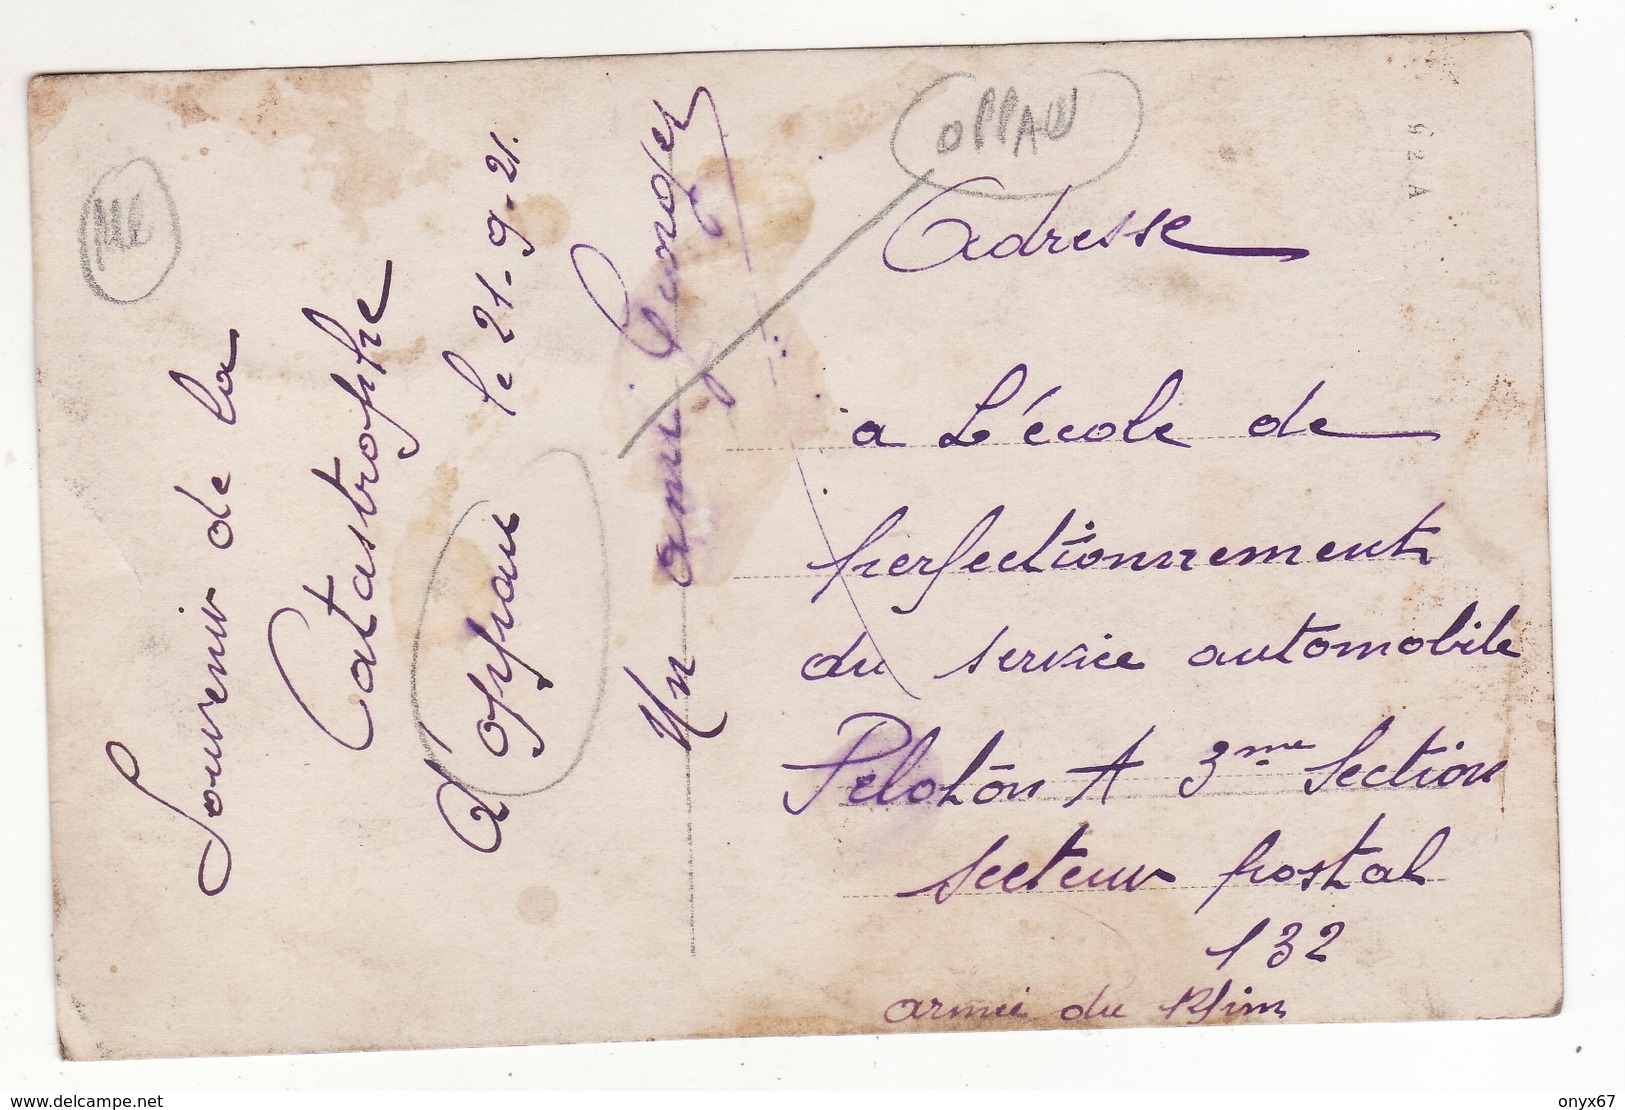 Souvenir de la
Catastrophe
d'Oppau le 21-9-21.
Un ami Georges
OPPAU
Adresse
a L'école de
perfectionnement
du service automobile
Peloton A 3me Section
Secteur postal
132
armée du Rhin
92 A
delcampe.net
onyx67